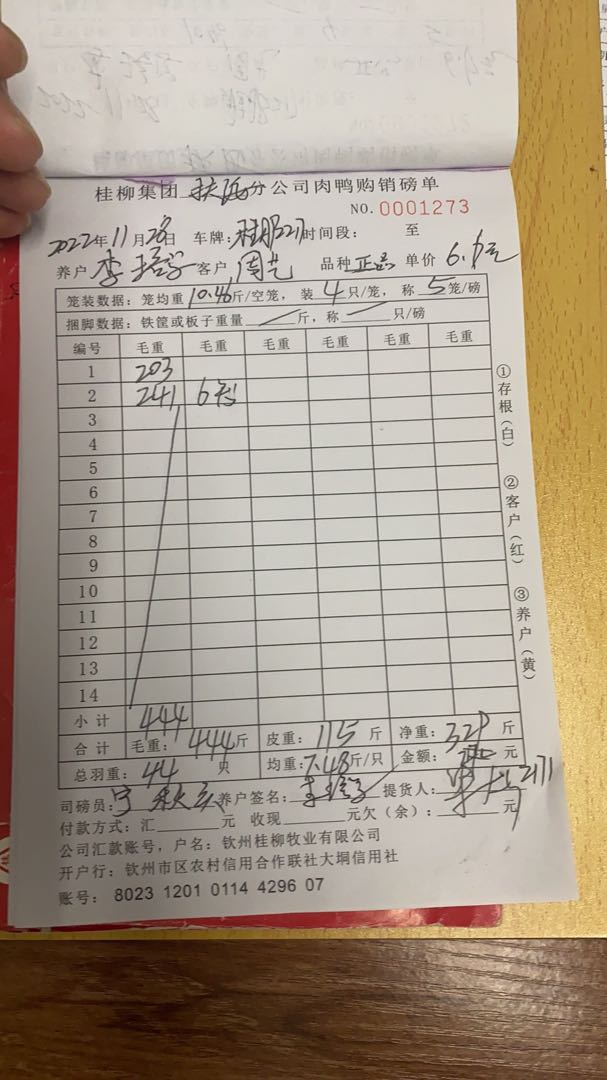 桂柳集团 扶绥分公司肉鸭购销磅单
NO. 0001273
2022年11月28日 车牌: 时间段: 至
养户 李培学 客户 周艺 品种 正品 单价 6.
笼装数据: 笼均重 10.46斤/空笼, 装 4 只/笼, 称 5 笼/磅
捆脚数据: 铁筐或板子重量 斤, 称 只/磅
编号 毛重 毛重 毛重 毛重 毛重 毛重
1 203
2 241 6笼
3
4
5
6
7
8
9
10
11
12
13
14
小计 444
合计 毛重: 444斤 皮重: 115 斤 净重: 329 斤
总羽重: 44 只 均重: 7.48斤/只 金额: 元
司磅员: 养户签名: 李培学 提货人:
付款方式: 汇 元 收现 元欠(余): 元
公司汇款账号, 户名: 钦州桂柳牧业有限公司
开户行: 钦州市区农村信用合作联社大垌信用社
账号: 8023 1201 0114 4296 07
①存根(白)
②客户(红)
③养户(黄)